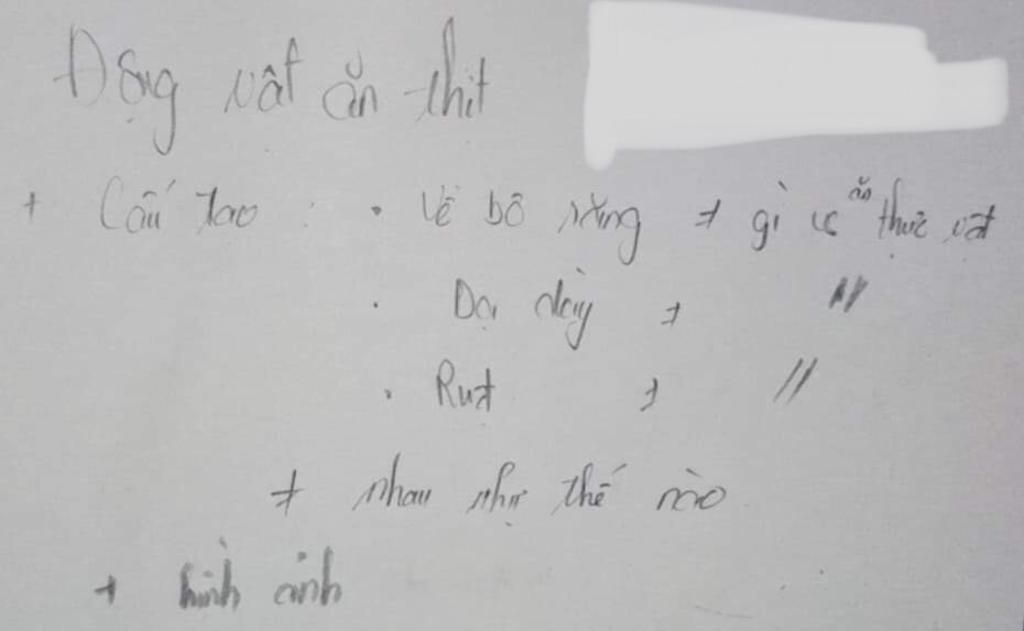 Động vật ăn thịt
+ Cấu tạo : . Về bộ răng ≠ gì vs ăn thực vật
. Dạ dày ≠ //
. Ruột ≠ //
≠ nhau như thế nào
+ hình ảnh